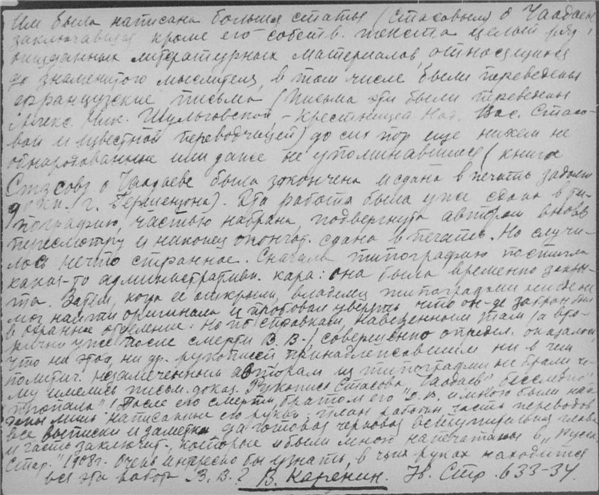 Им была написана большая статья (Стасовым о Чаадаеве
заключавшая кроме его собств. текста целый ряд
литературных материалов относящихся
до знаменитого мыслителя, в том числе были переведены
французские письма (Письма эти были переведены
Алекс. Ник. Шульговской - крестницей Над. Вас. Стасо-
вой и известной переводчицей) до сих пор еще никем не
обнародованные или даже не упоминавшиеся (книга
Стасова о Чаадаеве была закончена и сдана в печать задолго
до кн. г. Гершензона). Когда работа была уже сдана в ти-
пографию, частью набрана, подвергнута автором вновь
пересмотру и наконец окончат. сдана в печать. Но случи-
лось нечто странное. Сначала типографию постигла
какая-то административн. кара: она была временно закры-
та. Затем, когда ее открыли, владелец типографии нигде не
мог найти оригинала и пробовал уверять что он-де захвачен
в охранное отделение. Но по справкам, наведенным там (а вто-
рично уже после смерти В.В.) совершенно определ. оказалось,
что на этой ни др. рукописей принадлежавшим ни в чем
политич. незамеченным авторам из типографии не брали че-
му имелись письм. доказ. Рукопись Стасова "Чаадаев" бесследно
пропала! После его смерти, братом его Д.В. и мною были най-
дены лишь написанные его рукой: план работы часть переводов
все выписки и заметки да готовая черновая вступительная глава
и часть заключит. которые и были мною напечатаны в "Русск.
Стар." 1908 г. Очень интересно бы узнать, в чьих руках находится
вся эта работ В.В.? В. Каренин. Н. Стр. 633-34.